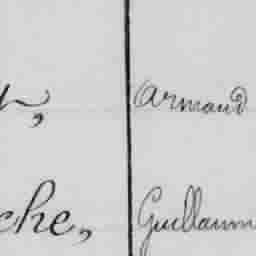 Armand
che, Guillaum